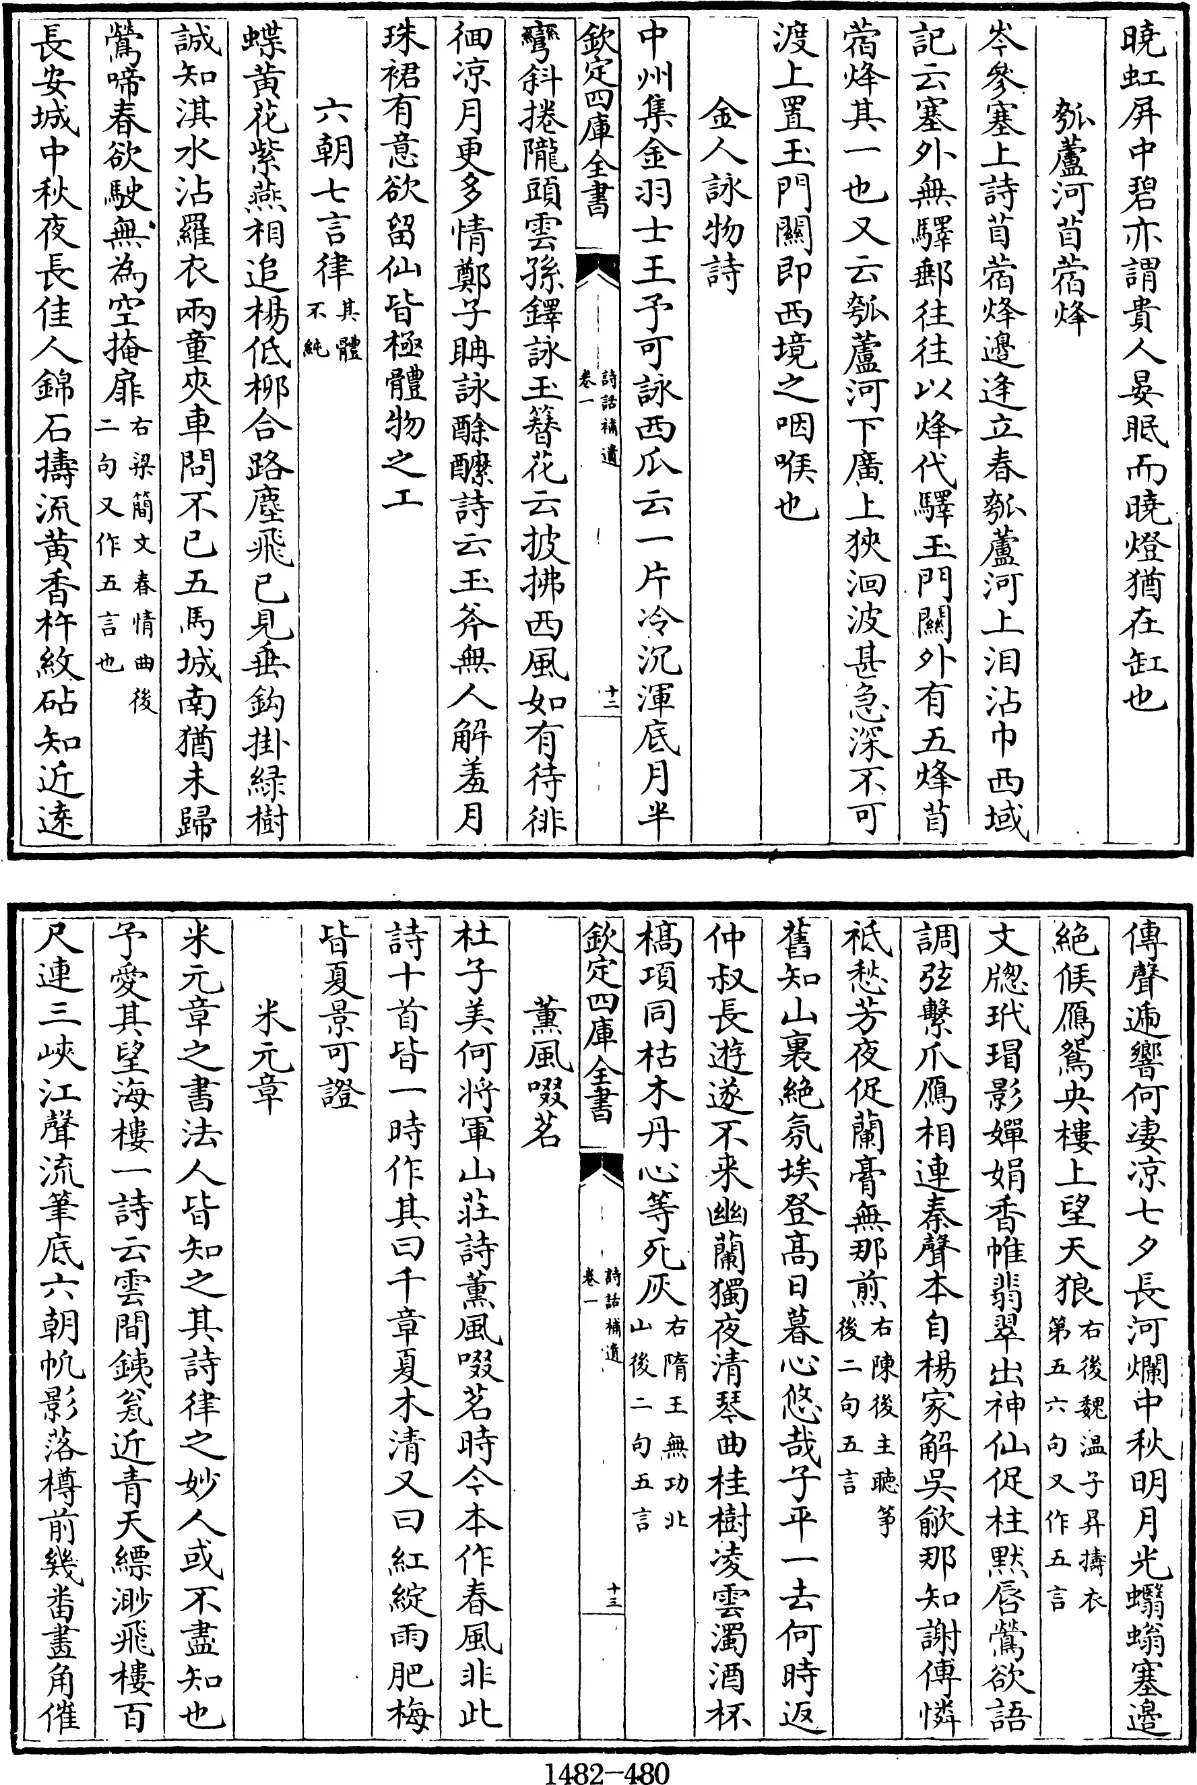 曉虹屏中碧亦謂貴人晏眠而曉燈猶在缸也
瓠蘆河苜蓿烽
岑參塞上詩苜蓿烽邊逢立春瓠蘆河上淚沾巾西域
記云塞外無驛郵往往以烽代驛玉門關外有五烽苜
蓿烽其一也又云瓠蘆河下廣上狹洄波甚急深不可
渡上置玉門關即西境之咽喉也
金人詠物詩
中州集金羽士王予可詠西瓜云一片冷沉渾底月半
欽定四庫全書
詩話補遺
卷一
十二
彎斜捲隴頭雲孫鐸詠玉簪花云披拂西風如有待徘
徊凉月更多情鄭子聃詠酴醾詩云玉斧無人解羞月
珠裙有意欲留仙皆極體物之工
六朝七言律其體不純
蝶黄花紫燕相追楊低栁合路塵飛已見垂鈎掛綠樹
誠知淇水沾羅衣兩童夾車問不已五馬城南猶未歸
鶯啼春欲駛無為空掩扉右梁簡文春情曲後二句又作五言也
長安城中秋夜長佳人錦石擣流黄香杵紋砧知近遠
傳聲逓響何凄凉七夕長河爛中秋明月光蠮螉塞邉
絶候鴈鴛鴦樓上望天狼右後魏温子昇擣衣第五六句又作五言
文牕玳瑁影嬋娟香帷翡翠出神仙促柱黙唇鶯欲語
調弦繫爪鴈相連秦聲本自楊家解吳歈那知謝傅憐
祗愁芳夜促蘭膏無那煎右陳後主聽筝後二句五言
舊知山裏絶氛埃登髙日暮心悠哉子平一去何時返
仲叔長遊遂不来幽蘭獨夜清琴曲桂樹凌雲濁酒杯
槁項同枯木丹心等死灰右隋王無功北山後二句五言
欽定四庫全書
詩話補遺
卷一
十三
薰風啜茗
杜子美何将軍山莊詩薰風啜茗時今本作春風非此
詩十首皆一時作其曰千章夏木清又曰紅綻雨肥梅
皆夏景可證
米元章
米元章之書法人皆知之其詩律之妙人或不盡知也
予愛其望海樓一詩云雲間鐵瓮近青天縹渺飛樓百
尺連三峽江聲流筆底六朝帆影落樽前幾番畫角催
1482-480